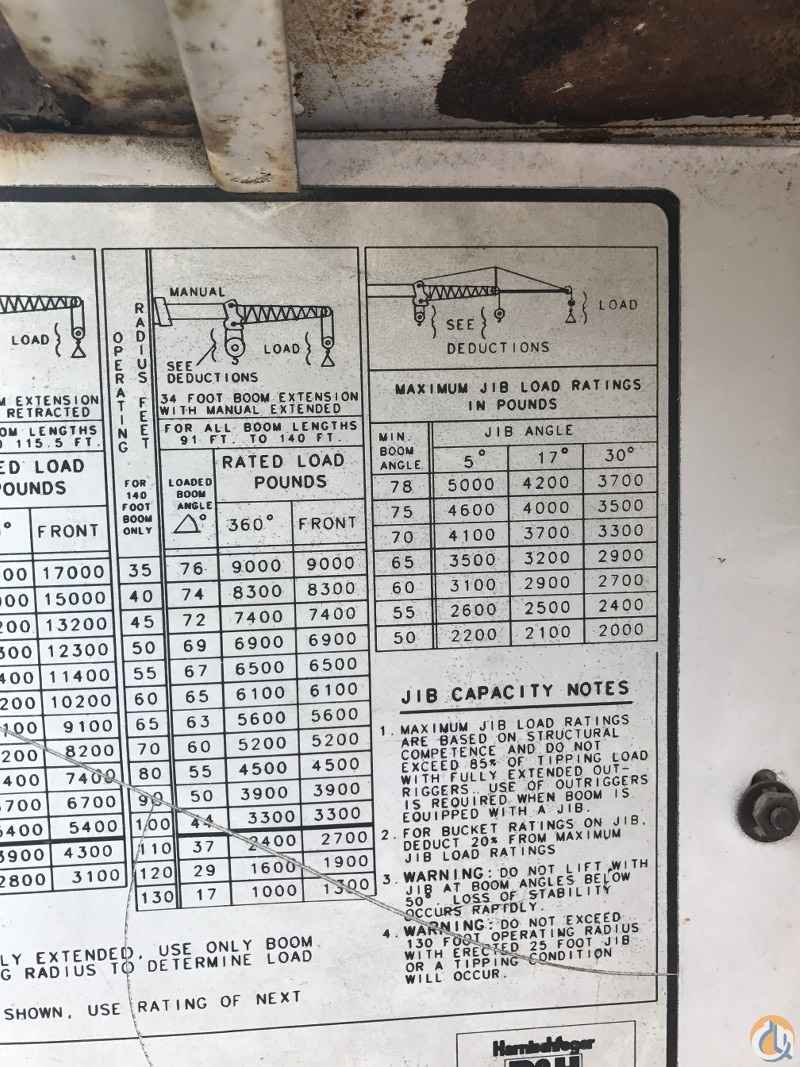 LOAD
M EXTENSION
RETRACTED
OM LENGTHS
115.5 FT.
ED LOAD
POUNDS
0° FRONT
00 17000
000 15000
200 13200
300 12300
400 11400
200 10200
100 9100
200 8200
400 7400
700 6700
6400 5400
3900 4300
2800 3100
OPERATING
RADIUS FEET
FOR
140
FOOT
BOOM
ONLY
MANUAL
SEE
DEDUCTIONS
LOAD
34 FOOT BOOM EXTENSION
WITH MANUAL EXTENDED
FOR ALL BOOM LENGTHS
91 FT. TO 140 FT.
LOADED
BOOM
ANGLE
△°
RATED LOAD
POUNDS
360° FRONT
35 76 9000 9000
40 74 8300 8300
45 72 7400 7400
50 69 6900 6900
55 67 6500 6500
60 65 6100 6100
65 63 5600 5600
70 60 5200 5200
80 55 4500 4500
90 50 3900 3900
100 44 3300 3300
110 37 2400 2700
120 29 1600 1900
130 17 1000 1300
SEE
DEDUCTIONS
LOAD
MAXIMUM JIB LOAD RATINGS
IN POUNDS
MIN.
BOOM
ANGLE
JIB ANGLE
5° 17° 30°
78 5000 4200 3700
75 4600 4000 3500
70 4100 3700 3300
65 3500 3200 2900
60 3100 2900 2700
55 2600 2500 2400
50 2200 2100 2000
JIB CAPACITY NOTES
1. MAXIMUM JIB LOAD RATINGS
ARE BASED ON STRUCTURAL
COMPETENCE AND DO NOT
EXCEED 85% OF TIPPING LOAD
WITH FULLY EXTENDED OUT-
RIGGERS. USE OF OUTRIGGERS
IS REQUIRED WHEN BOOM IS
EQUIPPED WITH A JIB.
2. FOR BUCKET RATINGS ON JIB,
DEDUCT 20% FROM MAXIMUM
JIB LOAD RATINGS
3. WARNING: DO NOT LIFT WITH
JIB AT BOOM ANGLES BELOW
50°. LOSS OF STABILITY
OCCURS RAPIDLY.
4. WARNING: DO NOT EXCEED
130 FOOT OPERATING RADIUS
WITH ERECTED 25 FOOT JIB
OR A TIPPING CONDITION
WILL OCCUR.
LY EXTENDED, USE ONLY BOOM
G RADIUS TO DETERMINE LOAD
SHOWN, USE RATING OF NEXT
Harnischfeger
P&H